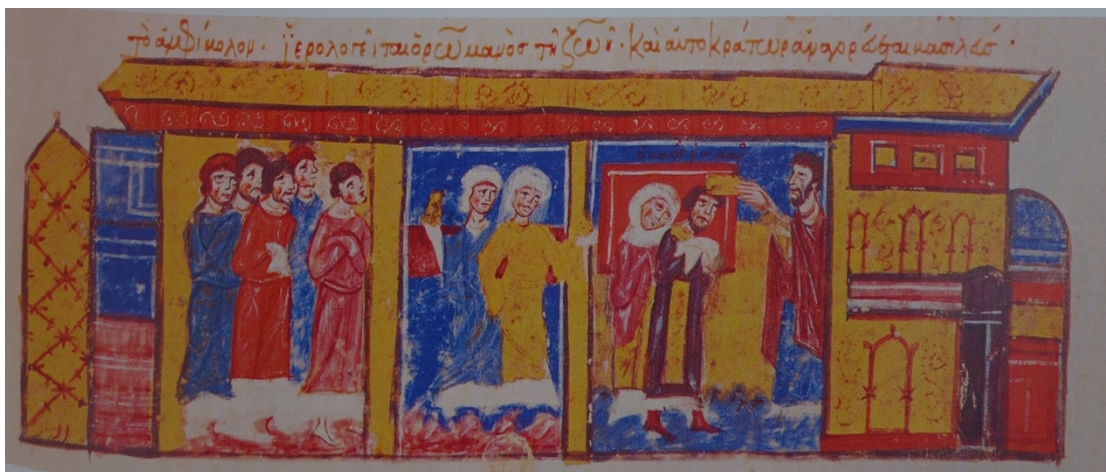 τὸ ἀμφίκολον · ϊερολογεῖται ὁ ῥωμανὸς τῆ ζωῆ · καὶ αὐτοκράτωρ ἀναγορεύεται βασιλεύς ·